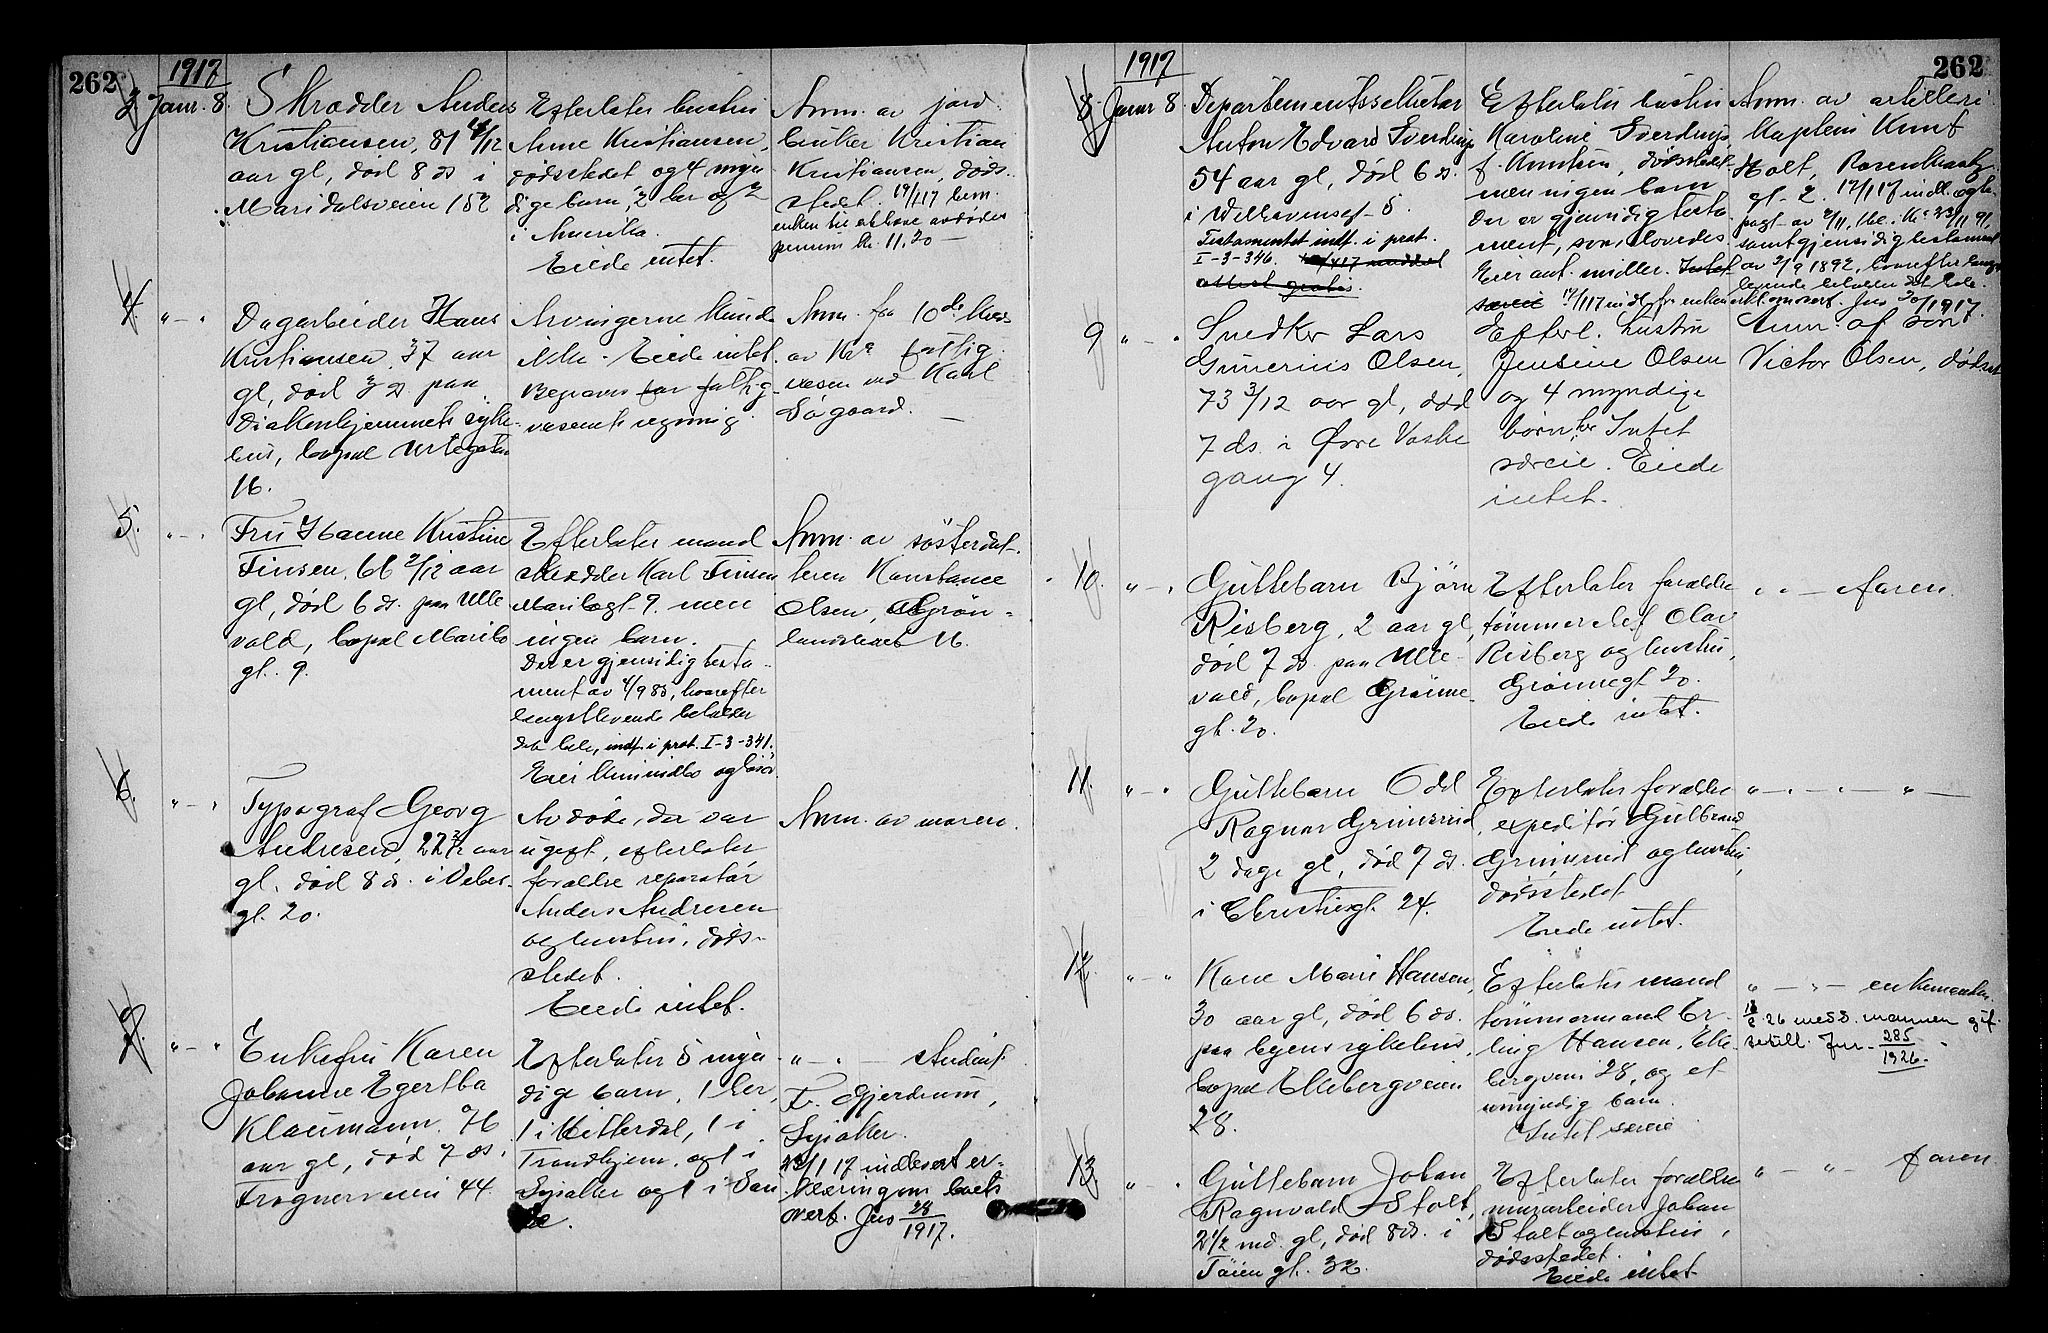 262
1917
3 Janr. 8.
Skrædder Anders
Kristiansen, 81 4/12
aar gl, död 8 ds i
Maridalsveien 152
Efterlater hustru
Anne Kristiansen,
dödsstedet og 4 myn
dige barn, 2 her og 2
i Amerika.
Eiede intet.
Anm. av jord
bruker Kristian
Kristiansen, döds
stedet. 19/1 17 bem.
enken til at have avdødes
pension kr. 11,20 —
4.
" — "
Dagarbeider Hans
Kristiansen, 37 aar
gl, död 3 ds paa
Diakonhjemmets syke
hus, bopæl Urtegaten
16.
Arvingerne kund
ikke. Eiede intet.
Begraves for fattig
væsenets regning
Anm. fra 10de kreds
av Kra fattig
væsen ved Karl
Søgaard. —
5.
" — "
Fru Hanne Kristine
Finsen, 66 2/12 aar
gl, död 6 ds. paa Ulle
vold, bopæl Maribo
gt. 9.
Efterlater mand
skrædder Karl Finsen
Maribogt. 9. men
ingen barn.
Der er gjensidig testa
ment av 4/9 85, hvorefter
længstlevende beholder
det hele, indf. i prot. I-3-341.
Eier kun indbo og løsøre
Anm. av søsterdat-
teren Konstance
Olsen, Grøn-
landsleiret 16.
6.
" — "
Typograf Georg
Andresen, 22 aar
gl. död 8 ds. i Vebers
gt. 20.
Avdøde, der var
ugift, efterlater
forældre reparatør
Anders Andresen
og hustru, døds-
stedet.
Eiede intet.
Anm. av moren.
7.
" — "
Enkefru Karen
Johanne Egertba
Klaumann. 76
aar gl, død 7 ds,
Frognerveien 44.
Efterlater 5 myn
dige barn, 1 her,
1 i Hitterdal, 1 i
Trondhjem, og 1 i
Lysaker og 1 i San
de.
" — " — student
F. Gjerdrum,
Lysaker.
23/1 17 indlevert er-
klæring om boets
overt. Jus 28/1917.
262
1917
8. Janr 8.
Departementssekretær
Anton Edvard Sverdrup
54 aar gl, død 6 ds.
i Welhavensgt. 5.
Testamentet indf. i prot.
I-3-346.
attest gratis.
Efterlater hustru
Karoline Sverdrup
f. Knutsen, dødsstedet
men ingen barn
Der er gjensidig testa
ment, som lovedes.
Eier ant. midler. Intet
særeie 17/1 17 indl. fr. enken
Anm. av artilleri
kaptein Knut
Holt, Rosenkrantz
gt. 2. 17/1 17 indl. ægte
pagt av
samt gjensidig testament
av 2/9 1892, hvorefter længst
levende beholder det hele.
erkl om overt. Jus 20/1917.
9
" — "
Snedker Lars
Gunerius Olsen,
73 3/12 aar gl, død
7 ds. i Øvre Vaske
gang 4.
Efterl. hustru
Jensine Olsen
og 4 myndige
børn her Intet
særeie. Eiede
intet.
Anm. af søn
Victor Olsen, dødsst
10.
" — "
Guttebarn Bjørn
Risberg, 2 aar gl,
død 7 ds. paa Ulle-
vold, bopæl Grønne
gt. 20.
Efterlater forældre
tømmer Olav
Risberg og hustru,
Grønnegt 20.
Eiede intet.
" " — faren.
11.
" — "
Guttebarn Odd
Ragnar Grimsrud,
2 dage gl, død 7 ds.
i Christiesgt. 24.
Efterlater forældre
expeditør Gulbrand
Grimsrud og hustru,
dødsstedet
Eiede intet.
" — " — " —
12.
" — "
Kone Marie Hansen,
30 aar gl, død 6 ds.
paa byens sykehus,
bopæl Ekebergveien
28.
Efterlater mand
tømmermand Er-
ling Hansen, Eke-
bergveien 28, og et
umyndig barn.
Intet særeie
" — " — enkemanden.
26 medd. mannen gif.
Jur. 285/1926.
13.
" — "
Guttebarn Johan
Ragnvald Stolt,
2 1/2 md. gl, død 8 ds. i
Tøien gt. 32.
Efterlater forældre
murarbeider Johan
Stolt og hustru,
dødsstedet.
Eiede intet
" — " — faren.